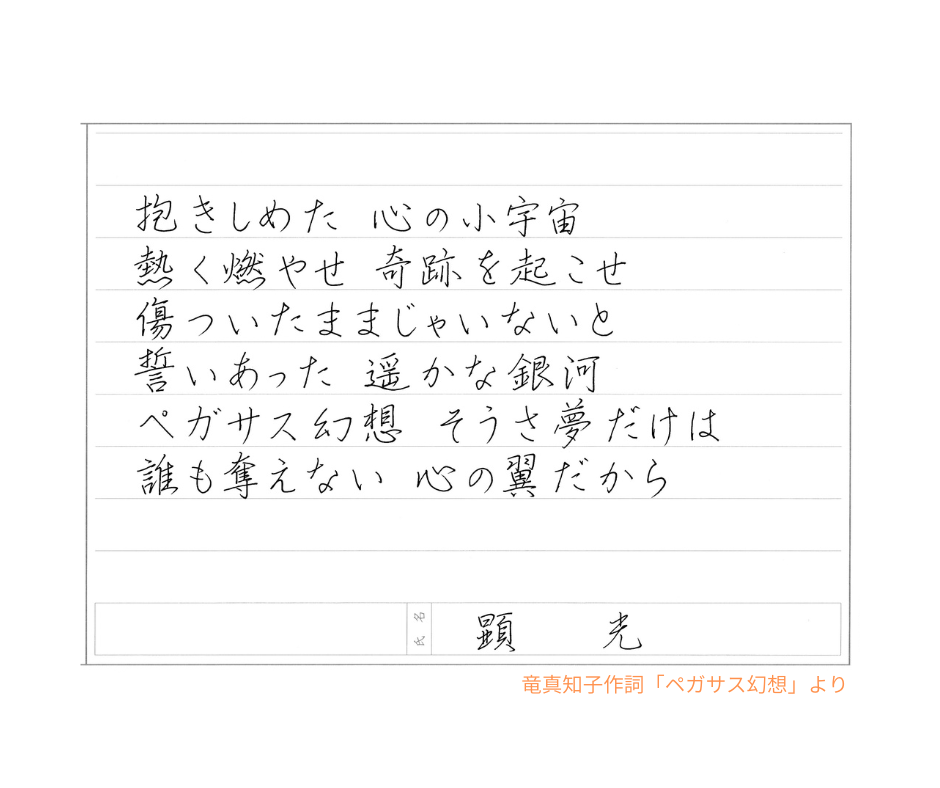 抱きしめた 心の小宇宙
熱く燃やせ 奇跡を起こせ
傷ついたままじゃいないと
誓いあった 遥かな銀河
ペガサス幻想 そうさ夢だけは
誰も奪えない 心の翼だから
氏名 顕 光
竜真知子作詞「ペガサス幻想」より